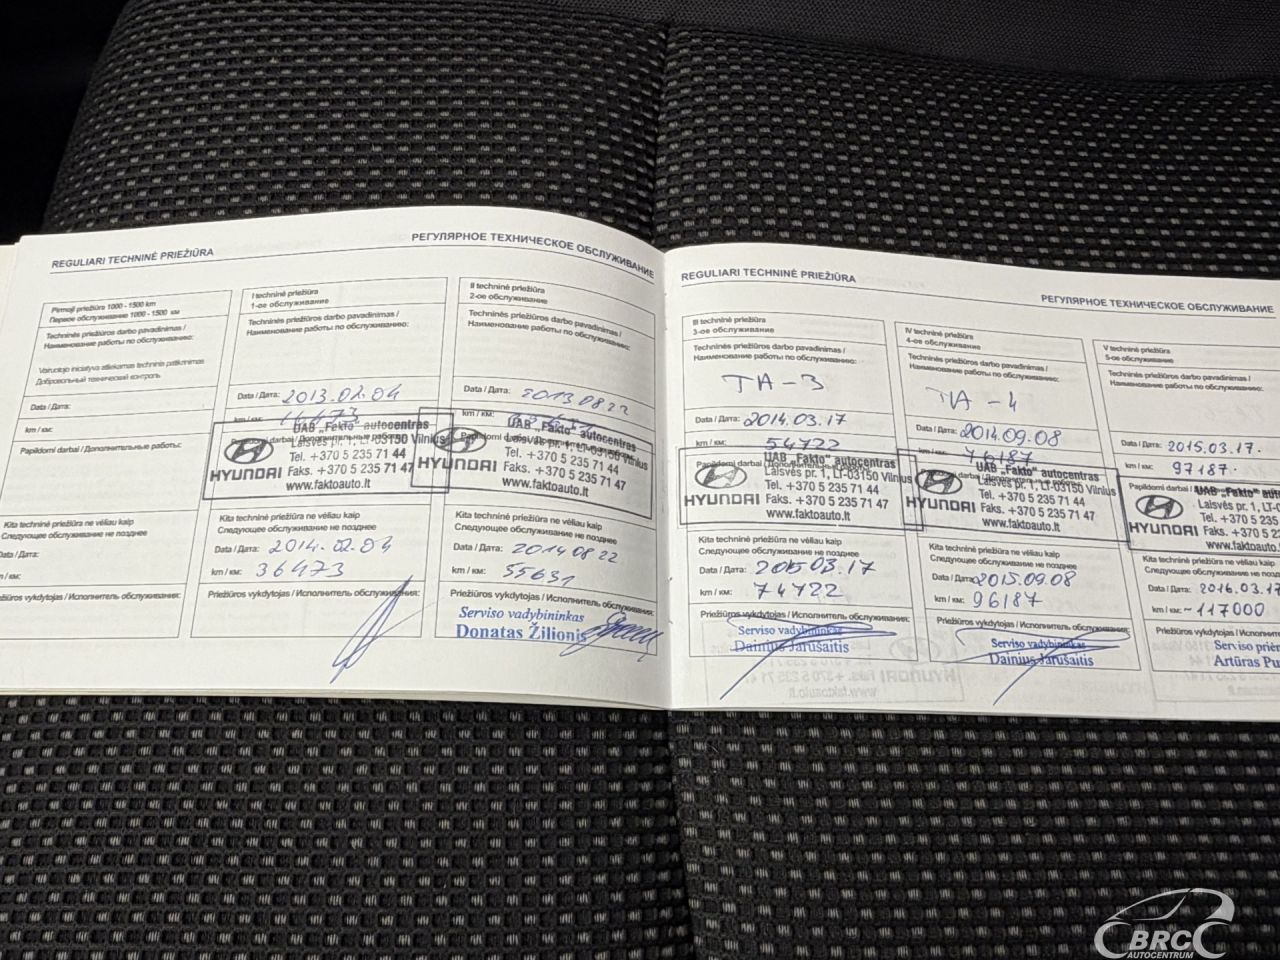 REGULIARI TECHNINĖ PRIEŽIŪRA
РЕГУЛЯРНОЕ ТЕХНИЧЕСКОЕ ОБСЛУЖИВАНИЕ
Pirmoji priežiūra 1000 - 1500 km
Первое обслуживание 1000 - 1500 км
Techninės priežiūros darbo pavadinimas /
Наименование работы по обслуживанию:
Vairuotojo iniciatyva atliekamas techninis patikrinimas
Добровольный технический контроль
Data / Дата:
km / км:
Papildomi darbai / Дополнительные работы:
Kita techninė priežiūra ne vėliau kaip
Следующее обслуживание не позднее
Data / Дата:
km / км:
Priežiūros vykdytojas / Исполнитель обслуживания:
I techninė priežiūra
1-ое обслуживание
Techninės priežiūros darbo pavadinimas /
Наименование работы по обслуживанию:
Data / Дата: 2013.02.04
km / км:
UAB „Fakto“ autocentras
Laisvės pr. 1, LT-03150 Vilnius
Tel. +370 5 235 71 44
HYUNDAI Faks. +370 5 235 71 47
www.faktoauto.lt
Kita techninė priežiūra ne vėliau kaip
Следующее обслуживание не позднее
Data / Дата: 2014.02.04
km / км: 36473
Priežiūros vykdytojas / Исполнитель обслуживания:
II techninė priežiūra
2-ое обслуживание
Techninės priežiūros darbo pavadinimas /
Наименование работы по обслуживанию:
Data / Дата: 2013 08 22
km / км:
UAB „Fakto“ autocentras
Laisvės pr. 1, LT-03150 Vilnius
Tel. +370 5 235 71 44
HYUNDAI Faks. +370 5 235 71 47
www.faktoauto.lt
Kita techninė priežiūra ne vėliau kaip
Следующее обслуживание не позднее
Data / Дата: 2014 08 22
km / км: 55631
Priežiūros vykdytojas / Исполнитель обслуживания:
Serviso vadybininkas
Donatas Žilionis
REGULIARI TECHNINĖ PRIEŽIŪRA
РЕГУЛЯРНОЕ ТЕХНИЧЕСКОЕ ОБСЛУЖИВАНИЕ
III techninė priežiūra
3-ое обслуживание
Techninės priežiūros darbo pavadinimas /
Наименование работы по обслуживанию:
TA-3
Data / Дата: 2014.03.17
km / км: 54722
Papildomi darbai / Дополнительные работы:
UAB „Fakto“ autocentras
Laisvės pr. 1, LT-03150 Vilnius
Tel. +370 5 235 71 44
HYUNDAI Faks. +370 5 235 71 47
www.faktoauto.lt
Kita techninė priežiūra ne vėliau kaip
Следующее обслуживание не позднее
Data / Дата: 2015.03.17
km / км: 74722
Priežiūros vykdytojas / Исполнитель обслуживания:
Serviso vadybininkas
Dainius Jarušaitis
IV techninė priežiūra
4-ое обслуживание
Techninės priežiūros darbo pavadinimas /
Наименование работы по обслуживанию:
TA-4
Data / Дата: 2014.09.08
km / км: 76187
UAB „Fakto“ autocentras
Laisvės pr. 1, LT-03150 Vilnius
Tel. +370 5 235 71 44
HYUNDAI Faks. +370 5 235 71 47
www.faktoauto.lt
Kita techninė priežiūra ne vėliau kaip
Следующее обслуживание не позднее
Data / Дата: 2015.09.08
km / км: 96187
Priežiūros vykdytojas / Исполнитель обслуживания:
Serviso vadybininkas
Dainius Jarušaitis
V techninė priežiūra
5-ое обслуживание
Techninės priežiūros darbo pavadinimas /
Наименование работы по обслуживанию:
Data / Дата: 2015.03.17.
km / км: 97187.
Papildomi darbai /
UAB „Fakto“
Laisvės pr. 1, LT-0
Tel. +370 5 23
HYUNDAI Faks. +370 5 2
www.faktoauto.lt
Kita techninė priežiūra ne vėliau kaip
Следующее обслуживание не позднее
Data / Дата: 2016.03.17
km / км: ~117000
Priežiūros vykdytojas /
Serviso
Artūras
BRC
AUTOCENTRUM